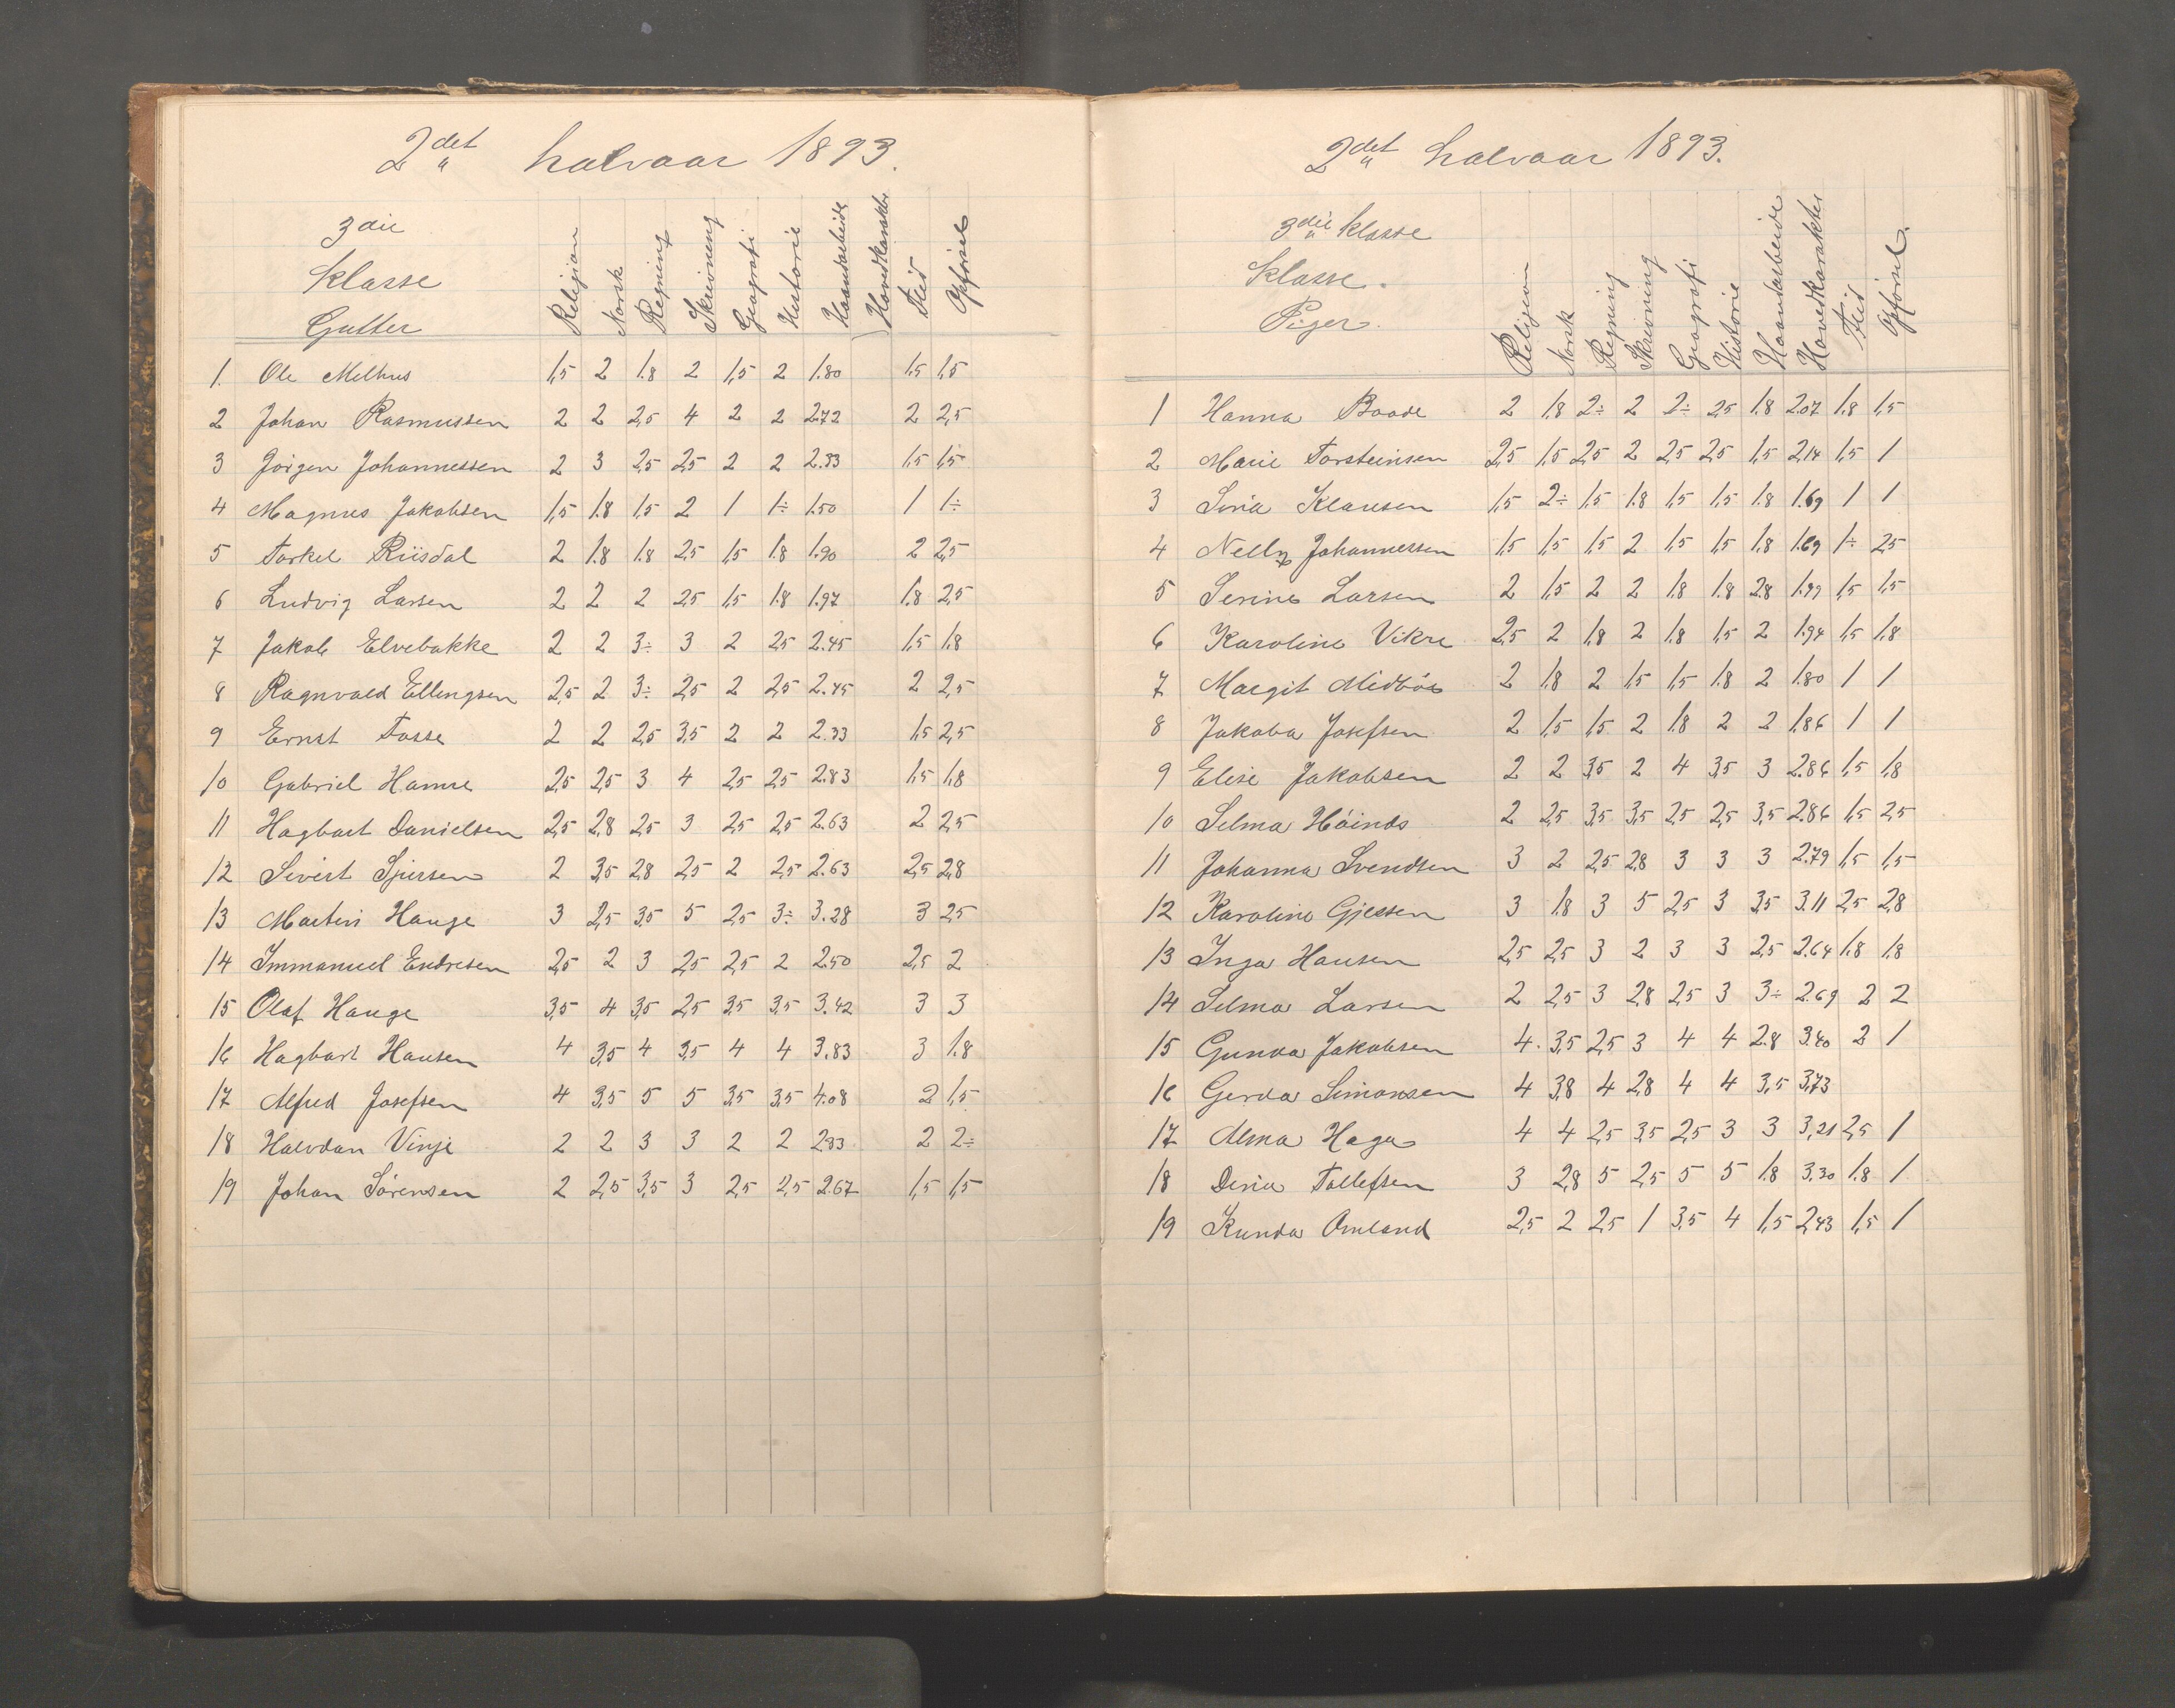 2det halvaar 1893.
3die
Klasse
Gutter
Religion Norsk Regning Skrivning Geografi Historie Haandarbeide Hovedkarakter Flid Opförsel
1. Ole Melhus 1,5 2 1.8 2 1,5 2 1.80 1.5 1,5
2 Johan Rasmussen 2 2 2,5 4 2 2 2.72 2 2,5
3 Jörgen Johannessen 2 3 2,5 2,5 2 2 2.33 1,5 1,5
4 Magnus Jakobsen 1,5 1.8 1,5 2 1 1÷ 1.50 1 1÷
5 Torkel Riisdal 2 1.8 1.8 2,5 1,5 1.8 1.90 2 2,5
6 Ludvig Larsen 2 2 2 2,5 1,5 1.8 1.97 1.8 2,5
7 Jakob Elvebakke 2 2 3÷ 3 2 2,5 2.45 1,5 1.8
8 Ragnvald Ellingsen 2,5 2 3÷ 2,5 2 2,5 2.45 2 2,5
9 Ernst Tosse 2 2 2,5 3,5 2 2 2.33 1,5 2,5
10 Gabriel Hamre 2,5 2,5 3 4 2,5 2,5 2.83 1,5 1,8
11 Hagbart Danielsen 2,5 2,8 2,5 3 2,5 2,5 2.63 2 2,5
12 Sivert Sjursen 2 3,5 2,8 2,5 2 2,5 2.63 2,5 2,8
13 Martin Hauge 3 2,5 3,5 5 2,5 3÷ 3.28 3 2,5
14 Immanuel Endresen 2,5 2 3 2,5 2,5 2 2.50 2,5 2
15 Olaf Hauge 3,5 4 3,5 2,5 3,5 3,5 3.42 3 3
16 Hagbart Hansen 4 3,5 4 3,5 4 4 3.83 3 1.8
17 Alfred Josefsen 4 3,5 5 5 3,5 3,5 4.08 2 1,5
18 Halvdan Vinje 2 2 3 3 2 2 2.33 2 2÷
19 Johan Sörensen 2 2,5 3,5 3 2,5 2,5 2.67 1,5 1,5
2det halvaar 1893.
3die klasse
Klasse.
Piger.
Religion Norsk Regning Skrivning Geografi Historie Haandarbeide Hovedkarakter Flid Opförsel.
1 Hanna Baade 2 1.8 2÷ 2 2÷ 2,5 1.8 2.07 1.8 1,5
2 Marie Torsteinsen 2,5 1,5 2,5 2 2,5 2,5 1,5 2,14 1,5 1
3 Sina Klausen 1,5 2÷ 1,5 1.8 1,5 1,5 1.8 1.69 1 1
4 Nelly Johannessen 1,5 1,5 1,5 2 1,5 1,5 1.8 1.69 1÷ 2,5
5 Serine Larsen 2 1,5 2 2 1.8 1.8 2.8 1.99 1,5 1,5
6 Karoline Vikre 2,5 2 1.8 2 1.8 1,5 2 1.94 1,5 1,8
7 Margit Midböe 2 1.8 2 1,5 1,5 1.8 2 1.80 1 1
8 Jakoba Josefsen 2 1,5 1,5 2 1.8 2 2 1,86 1 1
9 Elise Jakobsen 2 2 3,5 2 4 3,5 3 2.86 1,5 1,8
10 Selma Höinds 2 2,5 3,5 3,5 2,5 2,5 3,5 2.86 1,5 2,5
11 Johanna Svendsen 3 2 2,5 2,8 3 3 3 2.79 1,5 1,5
12 Karoline Gjessen 3 1.8 3 5 2,5 3 3,5 3.11 2,5 2,8
13 Inga Hansen 2,5 2,5 3 2 3 3 2,5 2.64 1.8 1,8
14 Selma Larsen 2 2,5 3 2,8 2,5 3 3÷ 2.69 2 2
15 Gunda Jakobsen 4. 3,5 2,5 3 4 4 2.8 3.40 2 1
16 Gerda Simonsen 4 3,8 4 2,8 4 4 3,5 3,73
17 Alma Haga 4 4 2,5 3,5 2,5 3 3 3,21 2,5 1
18 Dina Tollefsen 3 2,8 5 2,5 5 5 1.8 3,30 1.8 1
19 Kunda Omland 2,5 2 2,5 1 3,5 4 1,5 2,43 1,5 1